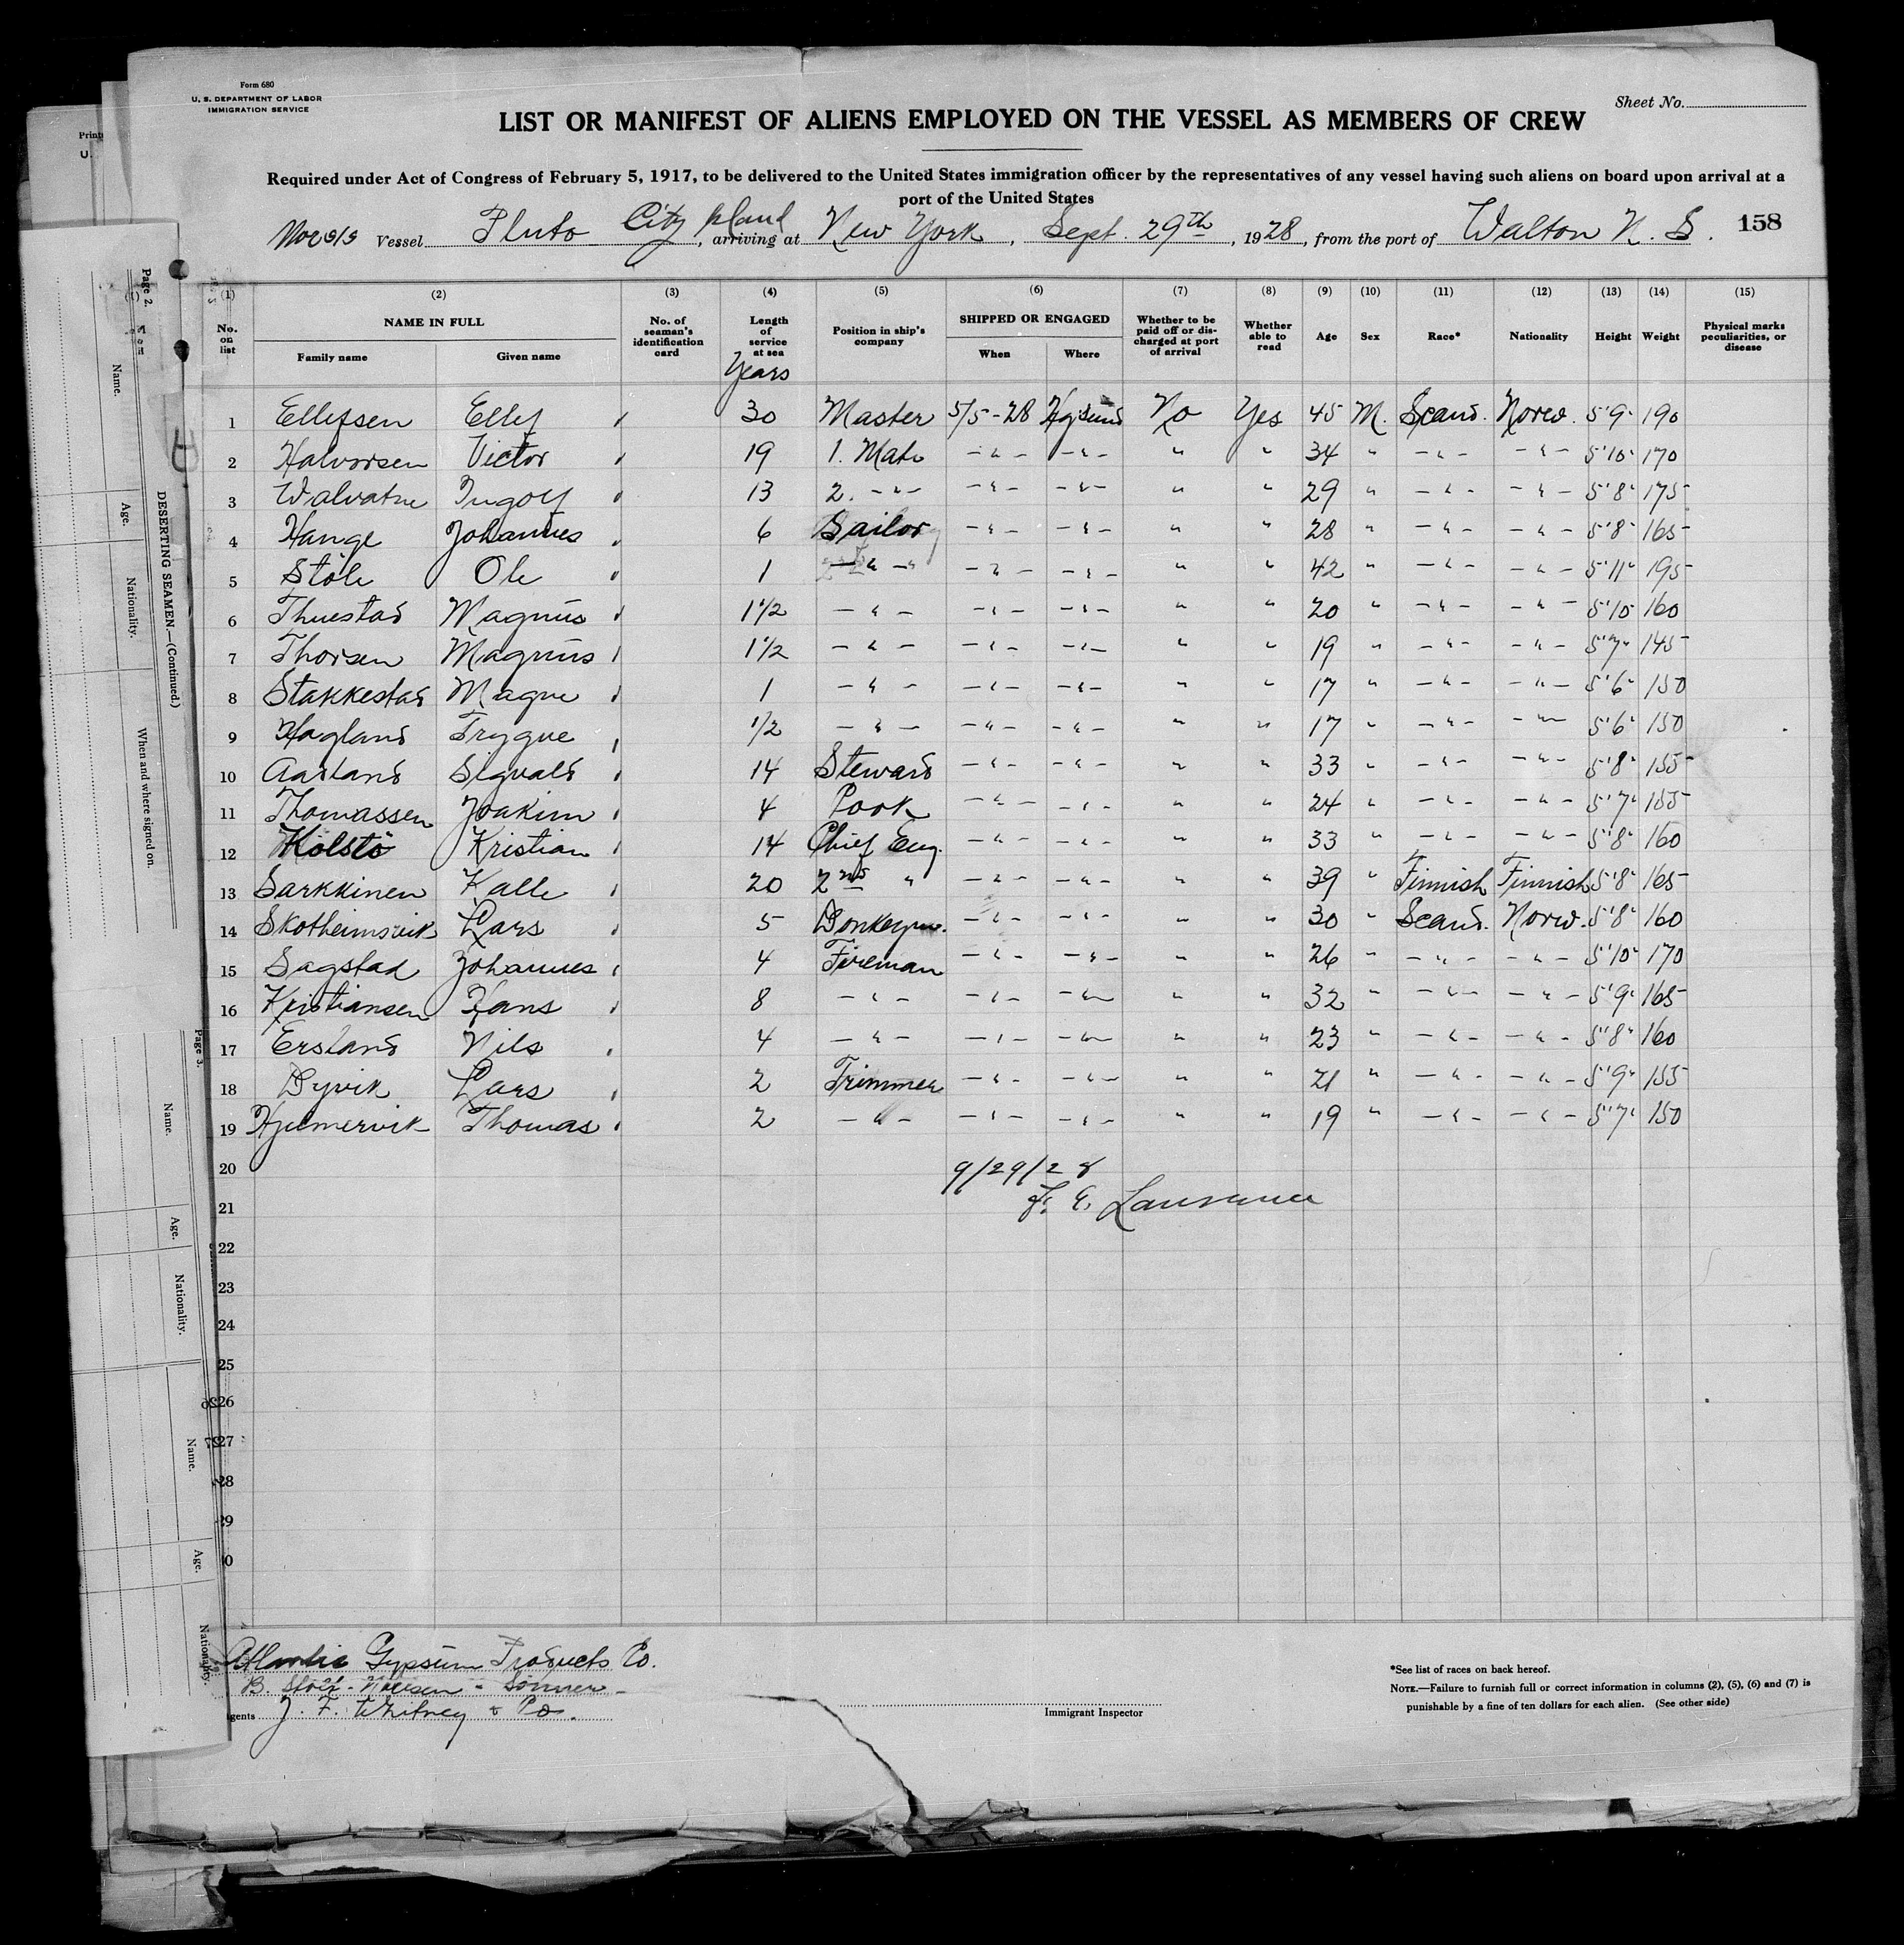 Form 680
U. S. DEPARTMENT OF LABOR
IMMIGRATION SERVICE
Sheet No.
LIST OR MANIFEST OF ALIENS EMPLOYED ON THE VESSEL AS MEMBERS OF CREW
Required under Act of Congress of February 5, 1917, to be delivered to the United States immigration officer by the representatives of any vessel having such aliens on board upon arrival at a
port of the United States
Nor s/s Vessel Pluto City Island, arriving at New York, Sept. 29th, 1928, from the port of Walton N. S. 158
(1) (2) (3) (4) (5) (6) (7) (8) (9) (10) (11) (12) (13) (14) (15)
No. on list NAME IN FULL Family name Given name No. of seaman's identification card Length of service at sea Years Position in ship's company SHIPPED OR ENGAGED When Where Whether to be paid off or discharged at port of arrival Whether able to read Age Sex Race* Nationality Height Weight Physical marks peculiarities, or disease
1 Ellefsen Ellef 30 Master 5/5-28 No Yes 45 M. Scand. Norw. 5'9" 190
2 Halvorsen Victor 19 1. Mate -"- -"- " " 34 " -"- -"- 5'10" 170
3 Walvatne Ingolf 13 2. -"- -"- -"- " " 29 " -"- -"- 5'8" 175
4 Hange Johannes 6 Sailor -"- -"- " " 28 " -"- -"- 5'8" 165
5 Stöle Ole 1 -"- -"- -"- " " 42 " -"- -"- 5'11" 195
6 Thuestad Magnus 1 1/2 -"- -"- -"- " " 20 " -"- -"- 5'10" 160
7 Thorsen Magnus 1 1/2 -"- -"- -"- " " 19 " -"- -"- 5'7" 145
8 Stakkestad Magne 1 -"- -"- -"- " " 17 " -"- -"- 5'6" 150
9 Hagland Trygve 1/2 -"- -"- -"- " " 17 " -"- -"- 5'6" 150
10 Aadland Sigvald 14 Steward -"- -"- " " 33 " -"- -"- 5'8" 155
11 Thomassen Joakim 4 Cook -"- -"- " " 24 " -"- -"- 5'7" 155
12 Kolstö Kristian 14 Chief Eng. -"- -"- " " 33 " -"- -"- 5'8" 160
13 Sarkkinen Kalle 20 2nd " -"- -"- " " 39 " Finnish Finnish 5'8" 165
14 Skotheimsvik Lars 5 Donkeym. -"- -"- " " 30 " Scand. Norw. 5'8" 160
15 Sagstad Johannes 4 Fireman -"- -"- " " 26 " -"- -"- 5'10" 170
16 Kristiansen Hans 8 -"- -"- -"- " " 32 " -"- -"- 5'9" 165
17 Ersland Nils 4 -"- -"- -"- " " 23 " -"- -"- 5'8" 160
18 Dyvik Lars 2 Trimmer -"- -"- " " 21 " -"- -"- 5'9" 155
19 Hjelmervik Thomas 2 -"- -"- -"- " " 19 " -"- -"- 5'7" 150
20 9/29/28
21 F. E. Lawrence
22
23
24
25
26
27
28
29
0
Atlantic Gypsum Products Co.
B. Stolt-Nielsen - Sönner
gents J. F. Whitney & Co.
Immigrant Inspector
*See list of races on back hereof.
NOTE.—Failure to furnish full or correct information in columns (2), (5), (6) and (7) is
punishable by a fine of ten dollars for each alien. (See other side)
Page 2.
Name.
Age.
Nationality.
When and where signed on.
DESERTING SEAMEN.—(Continued.)
Page 3.
Name.
Age.
Nationality.
Name.
Age.
Nationality.